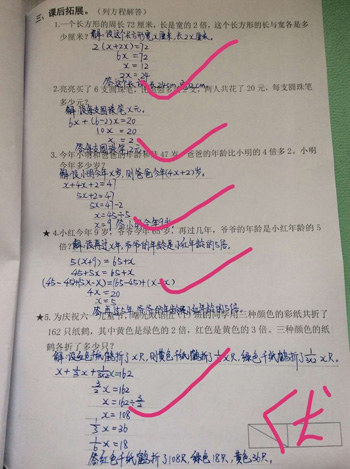 三、课后拓展。（列方程解答）
1.一个长方形的周长72厘米，长是宽的2倍，这个长方形的长与宽各是多
少厘米？ 解：设这个长方形宽x厘米，长2x厘米。
2(x+2x)=72
6x=72
x=12
2x=24
2.亮亮买了6支圆珠笔，两人共花了20元，每支圆珠
笔多少元？ 解：设每支圆珠笔x元。
10x=20
x=2
3.今年小明和爸爸的年龄 47岁，爸爸的年龄比小明的4倍多2。小明
今年多少岁？ 解：设小明今年x岁，则爸爸今年(4x+2)岁。
x+4x+2=47
5x+2=47
5x=47-2
x=45÷5
x=9
★4.小红今年9岁，爷爷今年65岁，再过几年，爷爷的年龄是小红年龄的5
倍？ 解：设再过x年，爷爷的年龄是小红年龄的5倍。
5(x+9)=65+x
45+5x=65+x
4x=20
x=5
答：再过5年，爷爷的年龄是小红年龄的5倍。
★5.为庆祝六一儿童节， 的同学用三种颜色的彩纸共折了
162只纸鹤，其中黄色是绿色的2倍，红色是黄色的3倍。三种颜色的纸
鹤各折了多少只？
解：设红色纸鹤折了x只，则黄色千纸鹤折了1/3x只，绿色千纸鹤折了 x只。
x=162
3/2x=162
x=162÷3/2
x=108
1/3x=36
1/6x=18
答：红色千纸鹤折了108只，绿色18只，黄色36只。